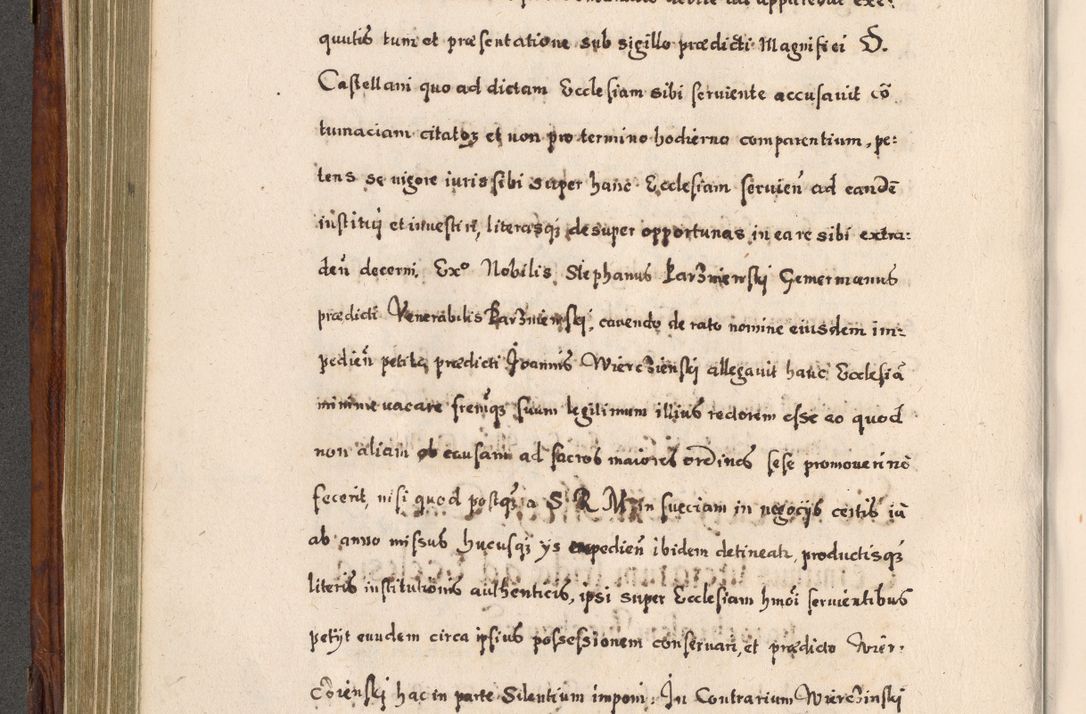 quutis tum et præsentatione sub sigillo prædicti Magnifici D.
Castellani quo ad dictam Ecclesiam sibi serviente accusavit cō
tumaciam citatoꝝ et non pro termino hodierno comparentium, pe:
tens se vigore iuris sibi super hanc Ecclesiam servien̄ ad eandē
institui et investiri, literasqꝫ desuper opportunas in ea re sibi extra:
den̄ decerni. Exº Nobilis Stephanus Karzniewski Germanus
prædicti Venerabilis Karzniewski, cavendo de rato nomine eiusdem im:
pedien̄ petita prædicti Joannis Wierczienski allegavit hanc Ecclesiā
minime vacare suum legitimum illius rectorem esse eo quod
non aliam ob causam ad sacros maiores ordines sese promoveri nō
fecerit, nisi quod postqꝫ a S. R. M. in sueciam in negocijs certis iā
ab anno missus hucusqꝫ ijs expedien̄ ibidem detineatr, productisqꝫ
literis institutionis authenticis, ipsi super Ecclesiam hmōi servientibus
petijt eundem circa ipsius possessionem conservari, et prædicto Wier:
czienski hac in parte Silentium imponi. In Contrarium Wierczinski